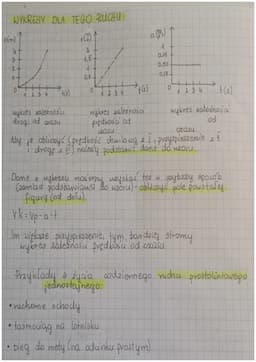 WYKRESY DLA TEGO RUCHU:
s(m) v(m/s) a(m/s²)
1 2 3 4 t(s) 1 2 3 4 t(s) 1 2 3 4 t(s)
wykres zależności wykres zależności wykres zależności
drogi od czasu prędkości od od
czasu czasu
Aby je obliczyć (prędkość chwilową z t, przyspieszenie z t
i drogę z t) należy podstawić dane do wzoru.
Dane z wykresu możemy uzyskać też w szybszy sposób
(zamiast podstawiania do wzoru) - obliczyć pole powstałej
figury (od dołu).
Vk = Vp - a · t
Im większe przyspieszenie, tym bardziej stromy
wykres zależności prędkości od czasu.
Przykłady z życia codziennego ruchu prostoliniowego
jednostajnego:
• ruchome schody
• na lotnisku
• bieg do mety (na odcinku prostym)